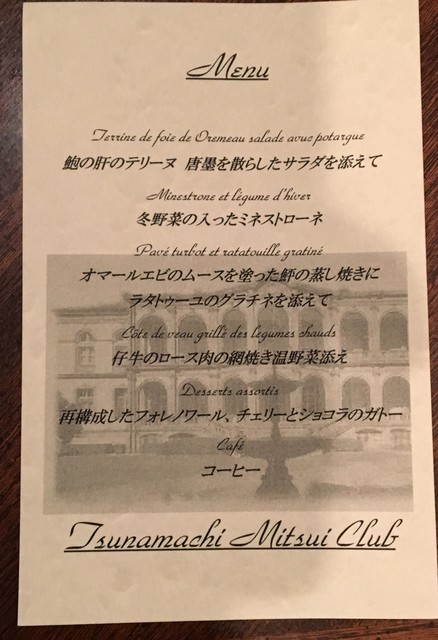 Menu
Terrine de foie de Oremeau salade avuc potargue
鮑の肝のテリーヌ 唐墨を散らしたサラダを添えて
Minestrone et légume d'hiver
冬野菜の入ったミネストローネ
Pavé turbot et ratatouille gratiné
オマールエビのムースを塗った鮃の蒸し焼きに
ラタトゥーユのグラチネを添えて
Côte de veau grillé des légumes chauds
仔牛のロース肉の網焼き温野菜添え
Desserts assortis
再構成したフォレノワール、チェリーとショコラのガトー
Café
コーヒー
Tsunamachi Mitsui Club